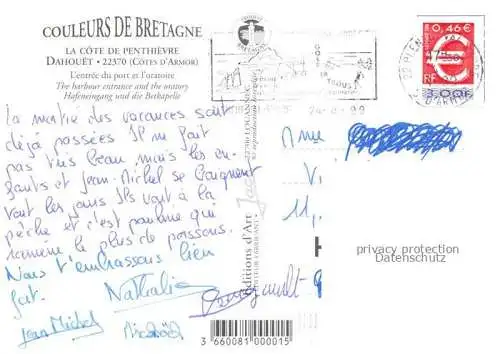 COULEURS DE BRETAGNE
LA CÔTE DE PENTHIÈVRE
DAHOUËT • 22370 (CÔTES D'ARMOR)
L'entrée du port et l'oratoire
The harbour entrance and the oratory
Hafeneingang und die Betkapelle
0,46€
RF
3,00F
La moitié des vacances sont
déjà passées Il ne fait
pas très beau mais les en-
fants et Jean-Michel se baignent
tous les jours Ils vont à la
pêche et c'est pauline qui
ramène le plus de poissons.
Nous t'embrassons bien
fort.
Nathalie
Jean Michel
Mme
V
11,
privacy protection
Datenschutz
éditions d'Art
3 660081 000015